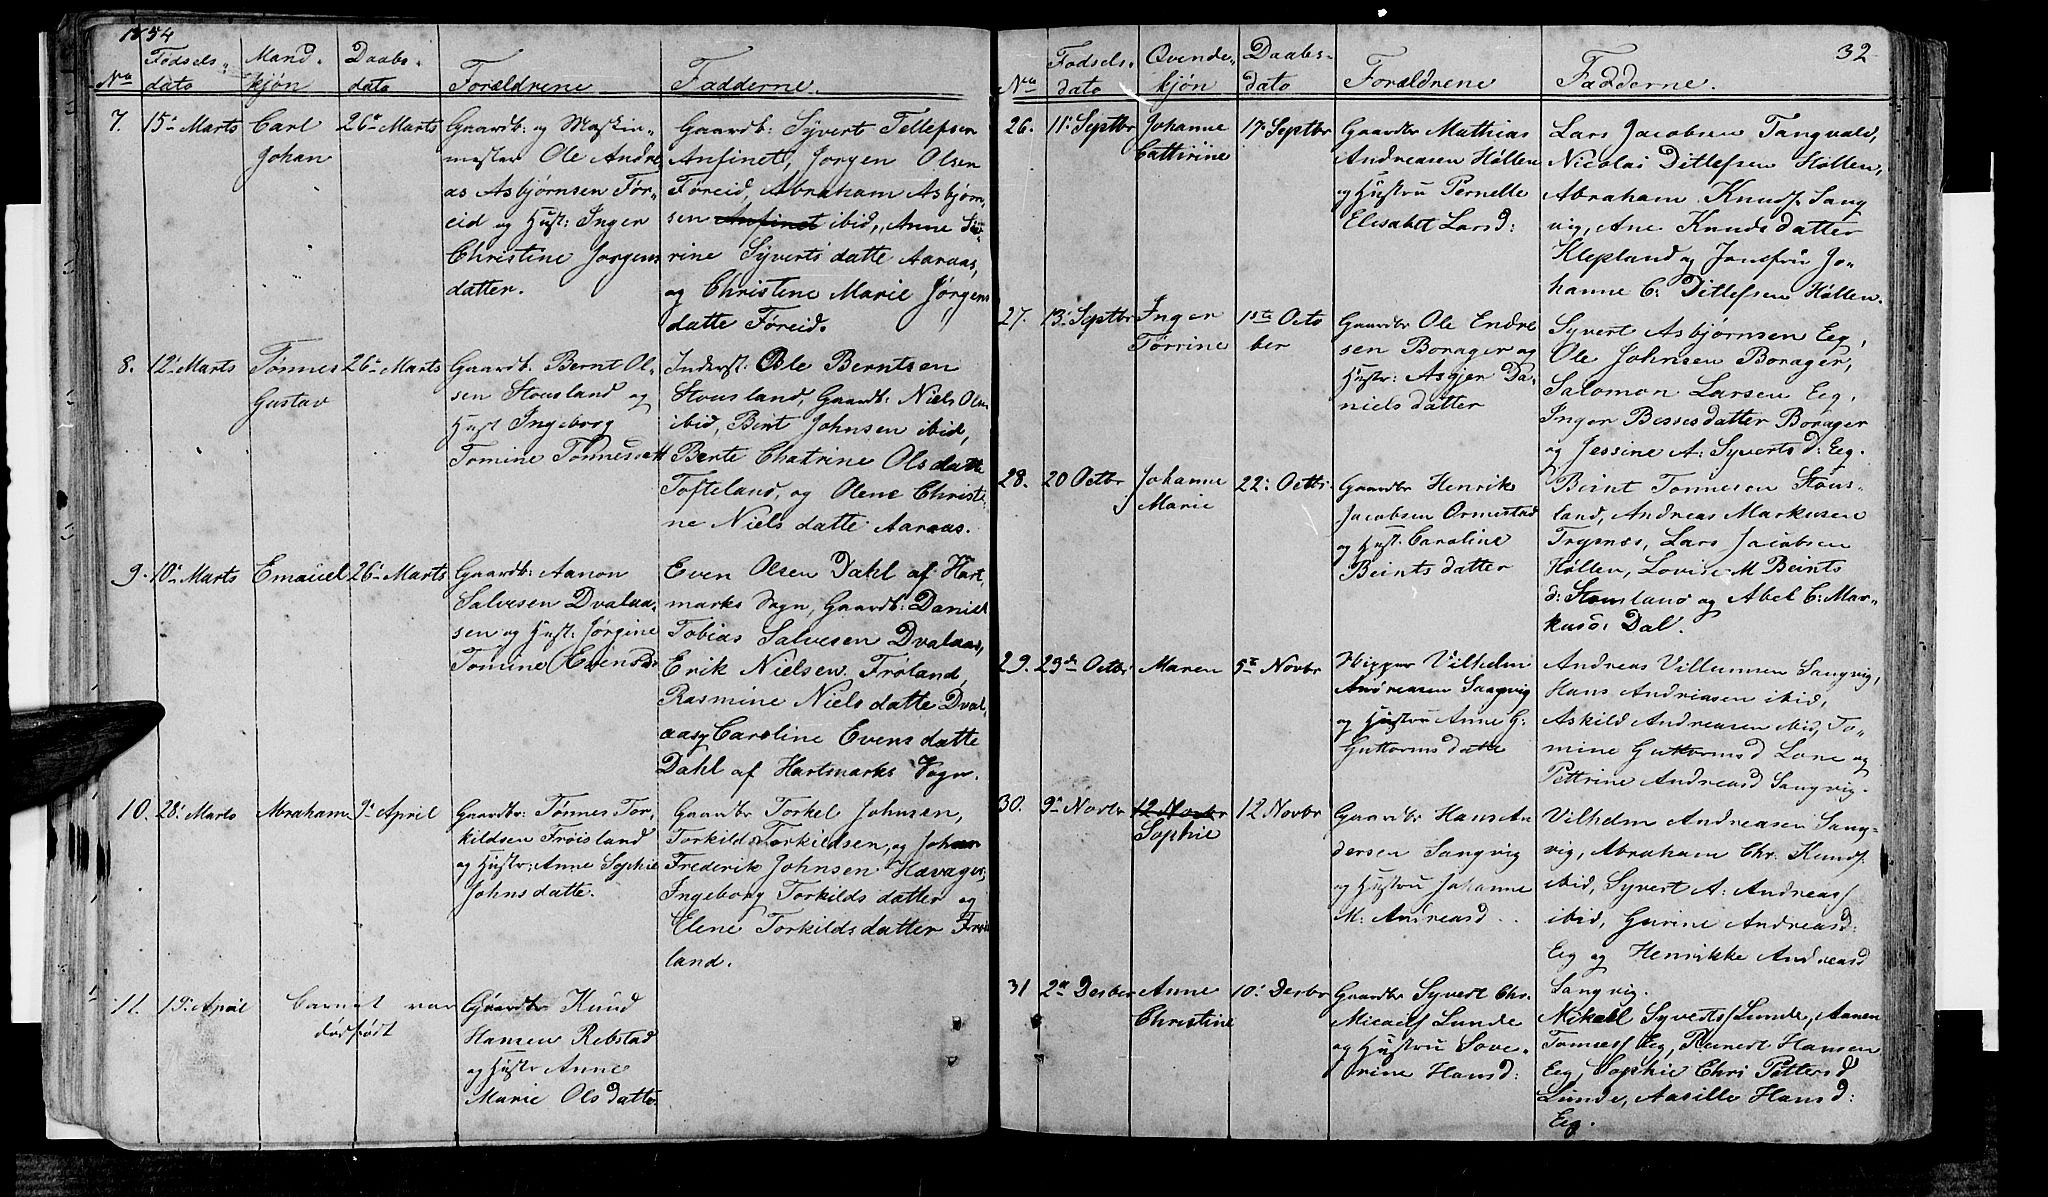 1854
No
Fødsels-
dato
Mand-
kjön
Daabs-
dato
Forældrene
Fadderne.
7.
15de Marts
Carl
Johan
26de Marts
Gaardb: og Maskin-
mester Ole Andre
as Asbjørnsen För-
eid og Hust: Inger
Christine Jorgens
datter.
Gaardb: Syvert Tellefsen
Anfinet, Jorgen Olsen
Foreid, Abraham Asbjørn-
sen Anfinet ibid, Anne
rine Syverts datte Aaraas,
og Christine Marie Jörgens
datte Föreid.
8.
12te Marts
Tønnes
Gustav
26de Marts
Gaardb: Bernt Ol-
sen Stousland og
Hust Ingeborg
Tomine Tönnesdatt
Inderst: Ole Berntsen
Stousland, Gaardb: Niels Olsen
ibid, Bint Johnsen ibid,
Berte Chatrine Olsdatte
Tofteland, og Olene Christi-
ne Niels datte Aaraas.
9.
10de Marts
Emanuel
26de Marts
Gaardb: Aanon
Salvesen Dvalaa-
sen og Hust: Jørgine
Tomine Evensd:
Even Olsen Dahl af Hart
marks Sogn, Gaardb: Daniel
Tobias Salvesen Dvalaas,
Erik Nielsen Frøland,
Rasmine Niels datte Dval
aas, Caroline Evens datte
Dahl af Hartmarks Sogn.
10.
28de Marts
Abraham
9de April
Gaardbr: Tønnes Tor-
kildsen Fröisland
og Hustr: Anne Sophie
Johns datte.
Gaardbr Torkel Johnsen,
Torkild Torkildsen, og Johan
Frederik Johnsen Havager,
Ingeborg Torkilds datter og
Elene Torkilds datter Fröis
land.
11.
19de April
Barnet var
dødfødt
Gaardbr Knud
Hansen Rebstad
og Hustr Anne
Marie Ols datte.
32
No
Fødsels-
dato
Qvinde-
kjön
Daabs-
dato
Forældrene
Fadderne.
26.
11te Septbr
Johanne
Cathrine
17de Septbr
Gaardbr Mathias
Andreasen Høllen
og Hustru Pernelle
Elisabet Larsd:
Lars Jacobsen Tangvald,
Nicolai Ditlefsen Höllen,
Abraham Knuds. Sang
vig, Ane Knuds datter
Klepland og Jomfru Jo-
hanne C: Ditlefsen Höllen.
27.
13de Septbr
Inger
Torrine
15te Octo
ber
Gaardbr Ole Endre
sen Borager og
Hustr: Asgjer Da-
niels datter
Syvert Asbjørnsen Eeg,
Ole Johnsen Borager,
Salomon Larsen Eeg,
Inger Besses datter Borager
og Jessine A: Syverts d: Eeg.
28.
20 Octbr
Johanne
Marie
22: Octbr.
Gaardbr Henrik
Jacobsen Ormestad
og Hust. Caroline
Beints datter
Beint Tonnesen Stous-
land, Andreas Markusen
Trysnæs, Lars Jacobsen
Höllen, Lovise M Beints
d: Stousland og Abel C: Mar-
kusd: Dal.
29.
23de Octbr
Maren
5te Novbr
Skipper Vilhelm
Andreasen Sangvig
og Hustru Anne G:
Guttorms datte
Andreas Villumsen Sangvig,
Hans Andreasen ibid,
Askild Andreasen ibid, To-
mine Guttormsd Lone og
Pettrine Andreasd Sangvig.
30.
9de Novbr
12 Novbr
Sophie
12 Novbr
Gaardbr Hans An
dersen Sangvig
og Hustru Johanne
M: Andreasd
Vilhelm Andreasen Sang-
vig, Abraham Chr. Knuds.
ibid, Syvert A: Andreas/
ibid, Gurine Andreasd:
Eeg og Henrikke Andreasd
Sangvig.
31
2den Decber
Anne
Christine
10de Decbr
Gaardbr Syvert Chr.
Micaels Lunde
og Hustru Seve-
rine Hansd:
Mikael Syverts/Lunde, Aanen
Tomas/ Eeg, Reinert Hansen
Eeg, Sophie Chri Petters d
Lunde, Aasille Hans d:
Eeg.